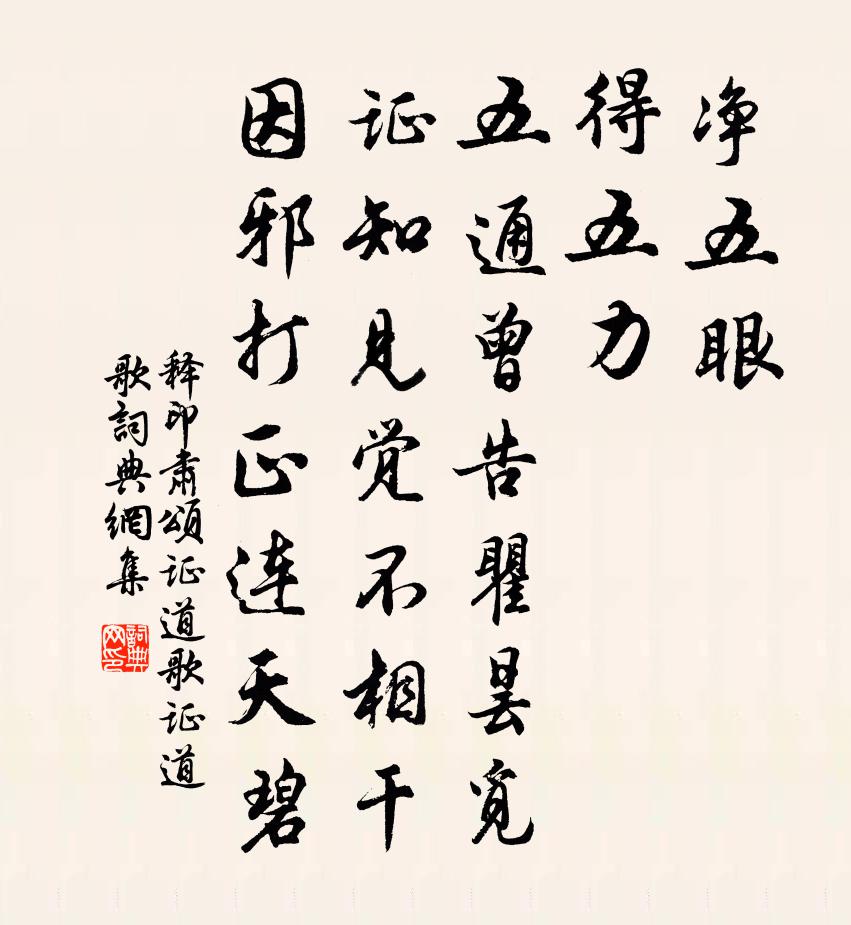 净五眼
得五力
五通曾告瞿昙觅
证知见觉不相干
因邪打正连天碧
释印肃颂证道歌证道
歌词典網集
詞典网印